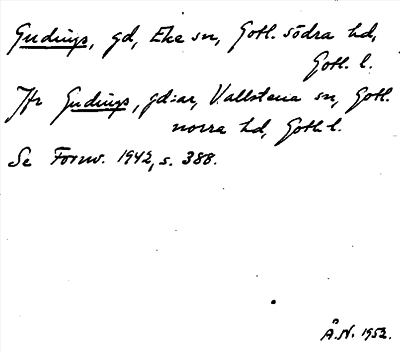 Gudings, gd, Eke sn, Gotl. södra hd,
Gotl. l.
Jfr Gudings, gd:ar, Vallstena sn, Gotl.
norra hd, Gotl. l.
Se Fornv. 1942, s. 388.
Å.N. 1952.